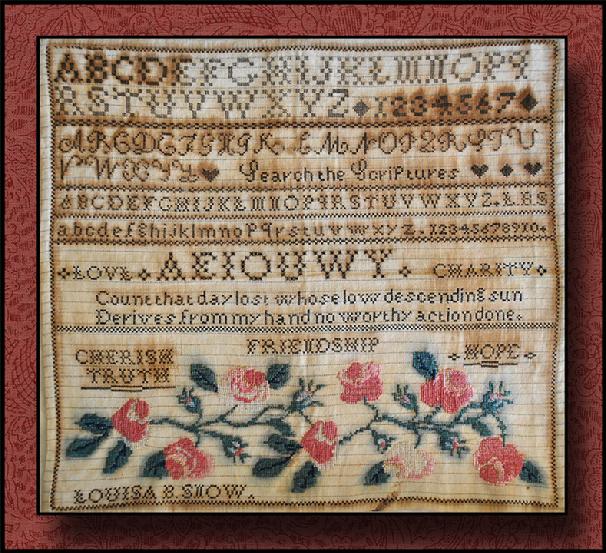 ABCDEFGHIJKLMNOPQ
RSTUVWXYZ 1234567
ABCDEFGHIJK LMNOPQRSTU
VWXYZ Search the Scriptures
ABCDEFGHIJKLMNOPQRSTUVWXYZ. L.B.S
abcdefghijklmnopqrstuvwxyz. 12345678910.
LOVE AEIOUWY CHARITY
Count that day lost whose low descending sun
Derives from my hand no worthy action done.
FRIENDSHIP
CHERISH HOPE
TRUTH
LOUISA B. SNOW.